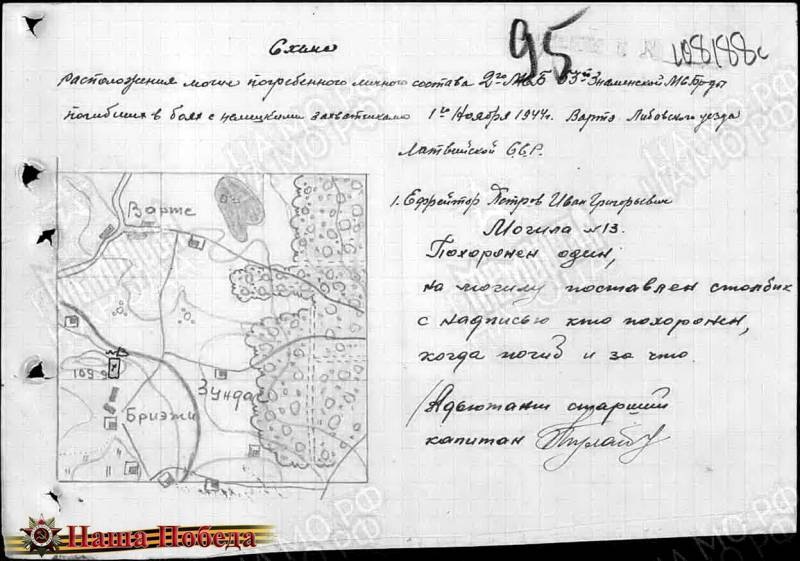 95
Схема
расположения могил погребенного личного состава 2го МСБ 53й Знаменской М.С.Бр-ды
погибших в боях с немецкими захватчиками 1го Ноября 1944г. Вартэ Либовского уезда
Латвийской С.С.Р.
1. Ефрейтор Петров Иван Григорьевич
Могила №13.
Похоронен один,
на могилу поставлен столбик
с надписью кто похоронен,
когда погиб и за что.
Адьютант старший
капитан
Вартэ
Зунда
Бриэжи
Наша Победа